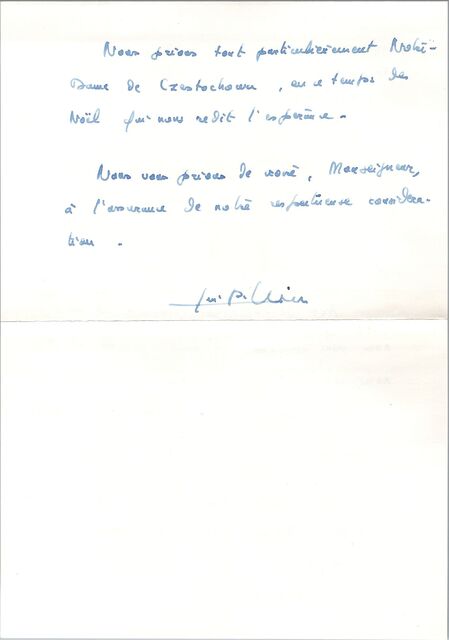 Nous prions tout particulièrement Notre-
Dame de Czestochowa, en ce temps de
Noël qui nous redit l'espérance.
Nous vous prions de croire, Monseigneur,
à l'assurance de notre respectueuse considéra-
tion.